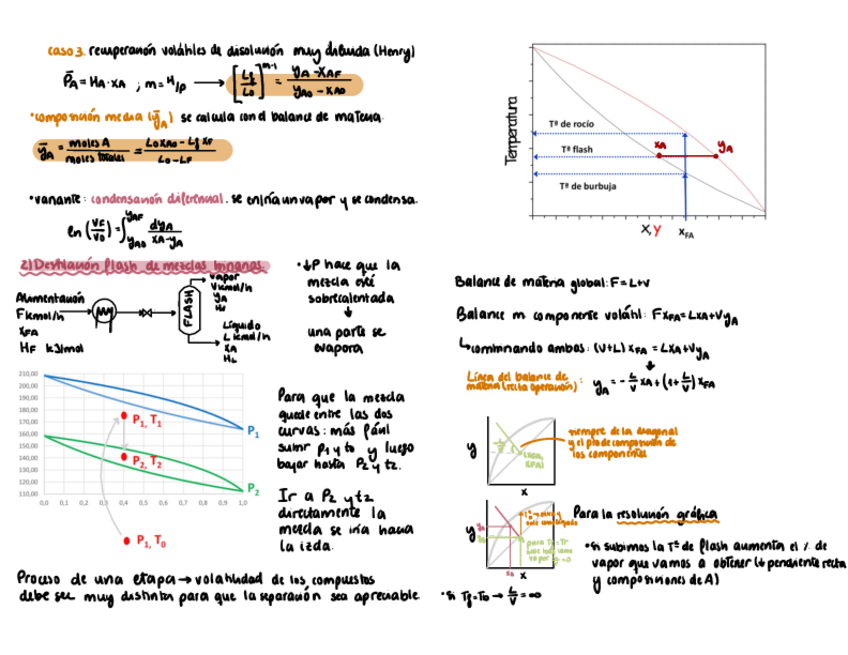 caso 3. recuperación volátiles de disolución muy diluida (Henry)
P̄A = HA·XA ; m = H/P → [Lf/L0]^(m-1) = (yA - XAF)/(yA0 - XA0)
•composición media (ȳA) se calcula con el balance de materia.
ȳA = moles A/moles totales = (L0XA0 - LfXF)/(L0 - LF)
•variante: condensación diferencial. se enfría un vapor y se condensa.
ln (VF/V0) = ∫ yA0 yAF dyA/(XA-yA)
2) Destilación flash de mezclas binarias.
Alimentación
F kmol/h
XFA
HF kJ/mol
FLASH
vapor
V kmol/h
yA
Hv
Líquido
L kmol/h
XA
HL
•↓P hace que la
mezcla esté
sobrecalentada
↓
una parte se
evapora
210,00
200,00
190,00
180,00
170,00
160,00
150,00
140,00
130,00
120,00
110,00
0,0 0,1 0,2 0,3 0,4 0,5 0,6 0,7 0,8 0,9 1,0
P1, T1
P1
P2, T2
P2
P1, T0
Para que la mezcla
quede entre las dos
curvas: más fácil
subir P1 y t0 y luego
bajar hasta P2 y t2.
Ir a P2 y t2
directamente la
mezcla se iría hacia
la izda.
Proceso de una etapa → volatilidad de los compuestos
debe ser muy distinta para que la separación sea apreciable
Temperatura
Tª de rocío
Tª flash
Tª de burbuja
XA
yA
X,Y
XFA
Balance de materia global: F = L+V
Balance m. componente volátil: FXFA = LXA+VyA
↳combinando ambos: (V+L) XFA = LXA+VyA
↓
Línea del balance de
materia (recta operación): yA = -L/V XA + (1+L/V) XFA
y
x
siempre de la diagonal
y el pto de composición de
los componentes
y
x
Para la resolución gráfica
•Si subimos la Tª de flash aumenta el % de
vapor que vamos a obtener (↓ pendiente recta
y composiciones de A)
•Si Tf=T0 → L/V = ∞